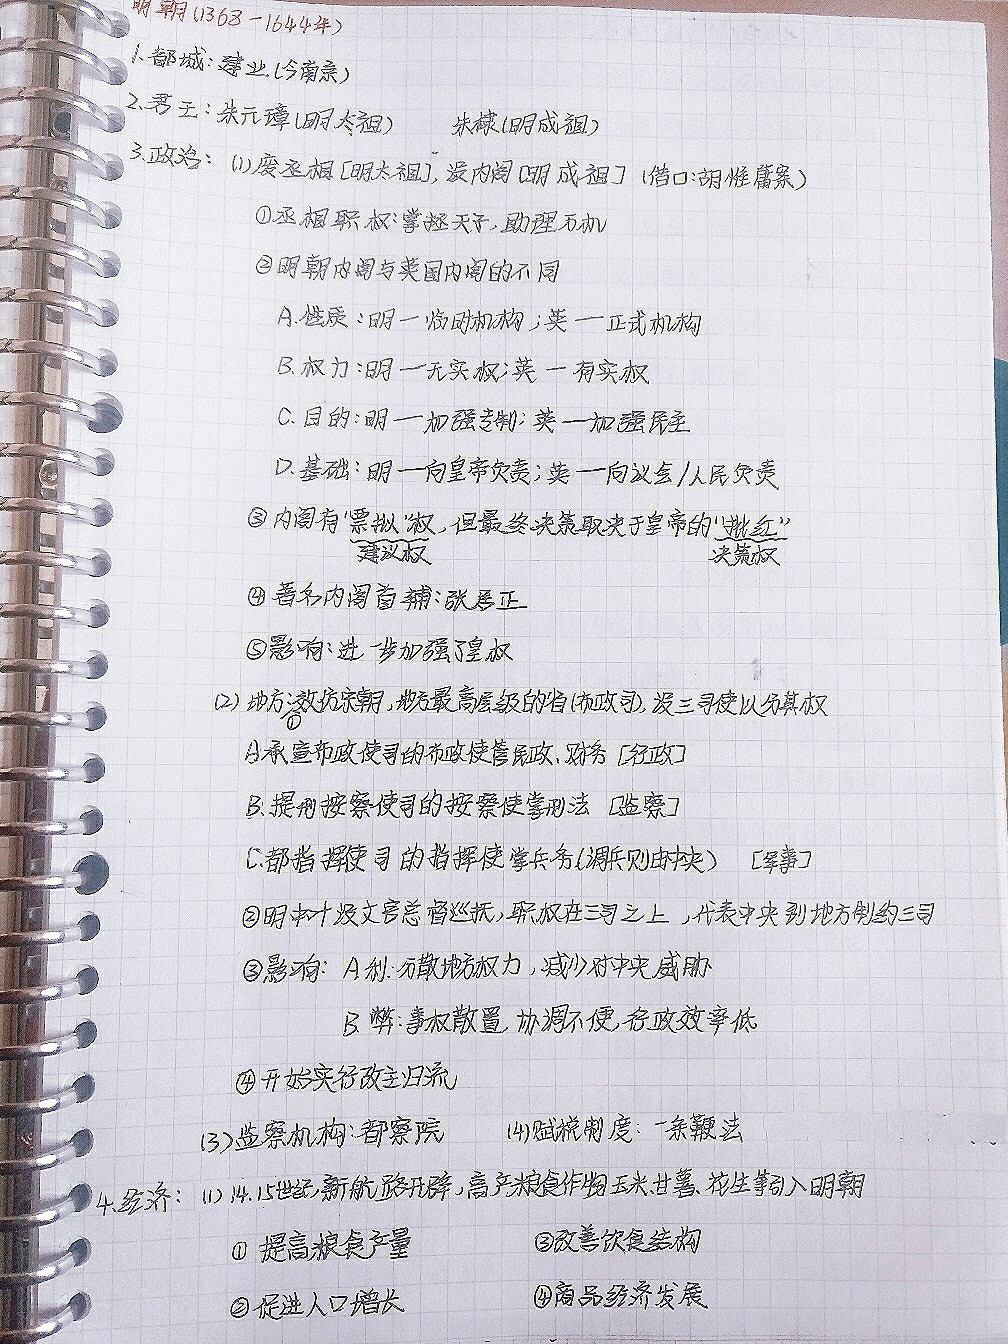 明朝(1368-1644年)
1.都城:建业(今南京)
2.君王:朱元璋(明太祖) 朱棣(明成祖)
3.政治:(1)废丞相[明太祖],设内阁[明成祖] (借口:胡惟庸案)
①丞相职权:掌丞天子,助理万机
②明朝内阁与英国内阁的不同
A.性质:明—临时机构;英—正式机构
B.权力:明—无实权;英—有实权
C.目的:明—加强专制;英—加强民主
D.基础:明—向皇帝负责;英—向议会/人民负责
③内阁有"票拟"权,但最终决策取决于皇帝的"批红"
建议权 决策权
④著名内阁首辅:张居正
⑤影响:进一步加强了皇权
(2)地方:①效仿宋朝,地方最高层级的省(布政司),设三司使以分其权
A.承宣布政使司的布政使管民政、财务[行政]
B.提刑按察使司的按察使掌刑法[监察]
C.都指挥使司的指挥使掌兵务(调兵则由中央) [军事]
②明中叶设文官总督巡抚,职权在三司之上,代表中央到地方制约三司
③影响:A.利:分散地方权力,减少对中央威胁
B.弊:事权散置,协调不便,行政效率低
④开始实行改土归流
(3)监察机构:都察院 (4)赋税制度:一条鞭法
4.经济:(1)14、15世纪,新航路开辟,高产粮食作物玉米、甘薯、花生等引入明朝
①提高粮食产量 ③改善饮食结构
②促进人口增长 ④商品经济发展